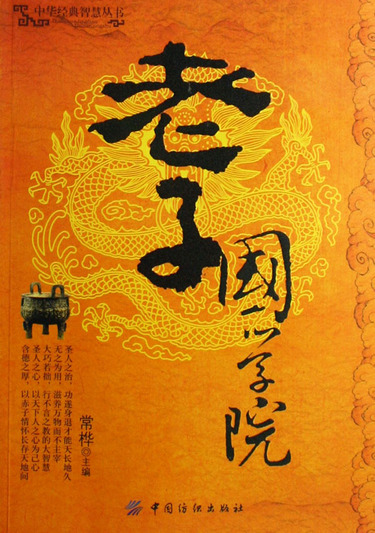 中华经典智慧丛书
老子
國学院
圣人之治，功遂身退才能天长地久
无之为用，滋养万物而不主宰
大巧若拙，行不言之教的大智慧
圣人之心，以天下人之心为己心
含德之厚，以赤子情怀长存天地间
常桦◎主编
中国纺织出版社